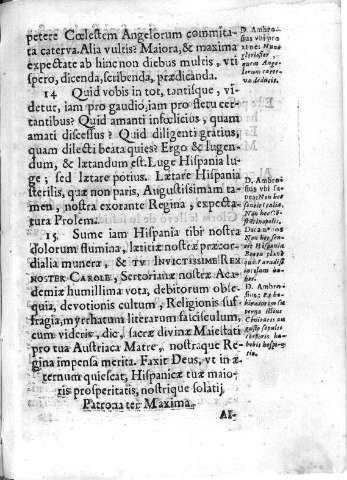 petere Cœlestem Angelorum commita-
ta caterva. Alia vultis? Maiora, & maxima
expectate ab hinc non diebus multis, vti
spero, dicenda, scribenda, prædicanda.
14 Quid vobis in tot, tantisque, vi-
detur, iam pro gaudio, iam pro fletu cer-
tantibus? Quid amanti infœlicius, quam
amati discessus? Quid diligenti gratius,
quam dilecti beata quies? Ergo & lugen-
dum, & lætandum est. Luge Hispania lu-
ge; sed lætare potius. Lætare Hispania
sterilis, quæ non paris, Augustissimam ta-
men, nostra exorante Regina, expecta-
tura Prolem.
15 Sume iam Hispania tibi nostra
dolorum flumina, lætitiæ nostræ præcor-
dialia munera, & TV INVICTISSIME REX
NOSTER CAROLE, Sertorianæ nostræ Aca-
demiæ humillima vota, debitorum obse-
quia, devotionis cultum, Religionis suf-
fragia, myrrhatum literarum fasciculum,
cum videris, dic, sacræ divinæ Maiestati
pro tua Austriaca Matre, nostraque Re-
gina impensa merita. Faxit Deus, vt in æ-
ternum quiescat, Hispanicæ tuæ maio-
ris prosperitatis, nostrique solatij,
Patrona ter Maxima.
AI-
D. Ambro-
sius vbi pro
xime: Nunc
gloriosior,
quam Angelorum cater-
va deducis.
D. Ambro-
sius vbi su-
pra:
D. Ambro-
sius: